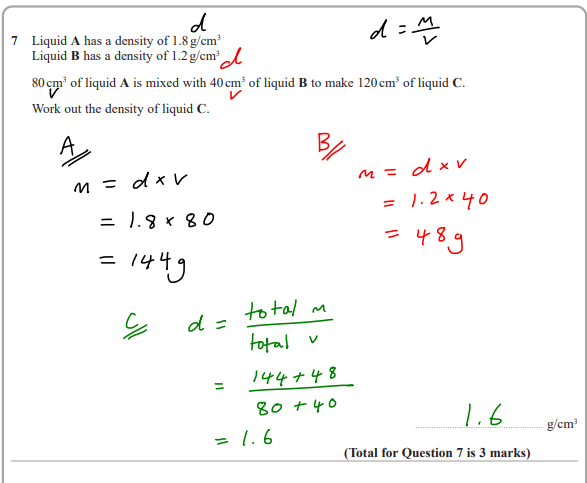 d
d = M/V
7 Liquid A has a density of 1.8 g/cm³
Liquid B has a density of 1.2 g/cm³
d
80 cm³ of liquid A is mixed with 40 cm³ of liquid B to make 120 cm³ of liquid C.
v
v
Work out the density of liquid C.
A
m = d × v
= 1.8 × 80
= 144g
B
m = d × v
= 1.2 × 40
= 48g
C
d = total m / total v
= 144 + 48 / 80 + 40
= 1.6
1.6 g/cm³
(Total for Question 7 is 3 marks)